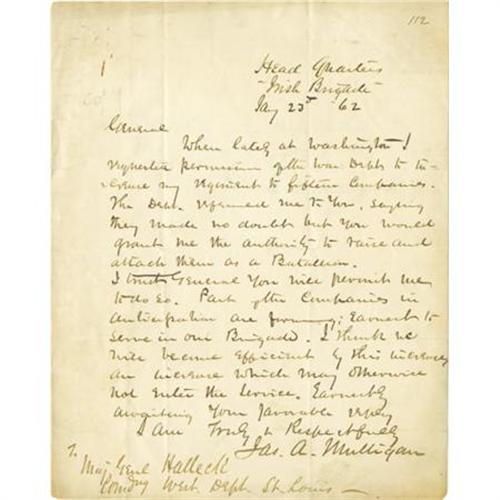 112
Head Quarters
Irish Brigade
Jany 23d '62
General
When lately at Washington I
requested permission of the War Dept. to in-
crease my regiment to fifteen Companies.
The Dept. referred me to You, saying
they made no doubt but You would
grant me the authority to raise and
attach them as a Battalion.
I trust General You will permit me
to do so. Part of the Companies in
anticipation are forming; Earnest to
serve in our Brigade. I think we
will become efficient by this increase,
an increase which may otherwise
not enter the Service. Earnestly
awaiting Your favorable reply
I Am Truly & Respectfully
Jas. A. Mulligan
To
Maj. Genl Halleck
Comdng West. Dept. St. Louis